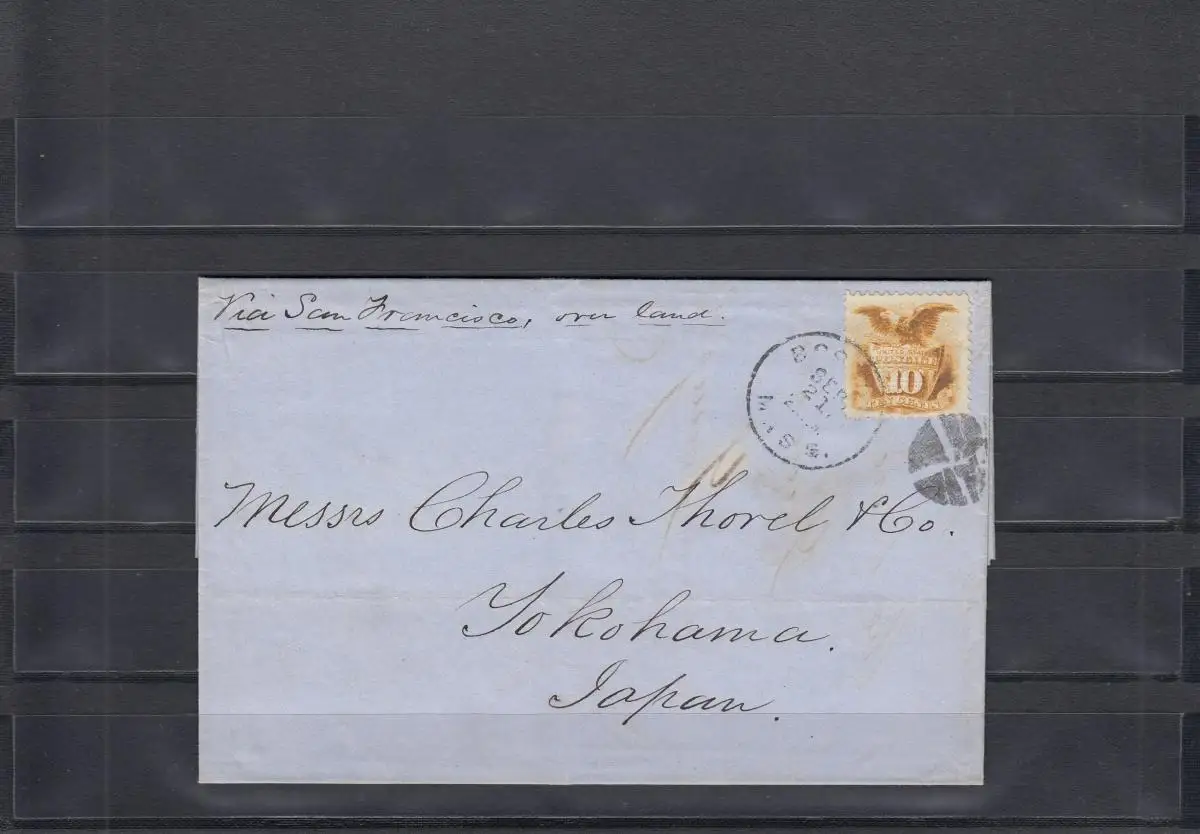 Via San Francisco, over land.
UNITED STATES
10
BOS
SEP
21
MASS.
Messrs Charles Thorel & Co.
Yokohama.
Japan.